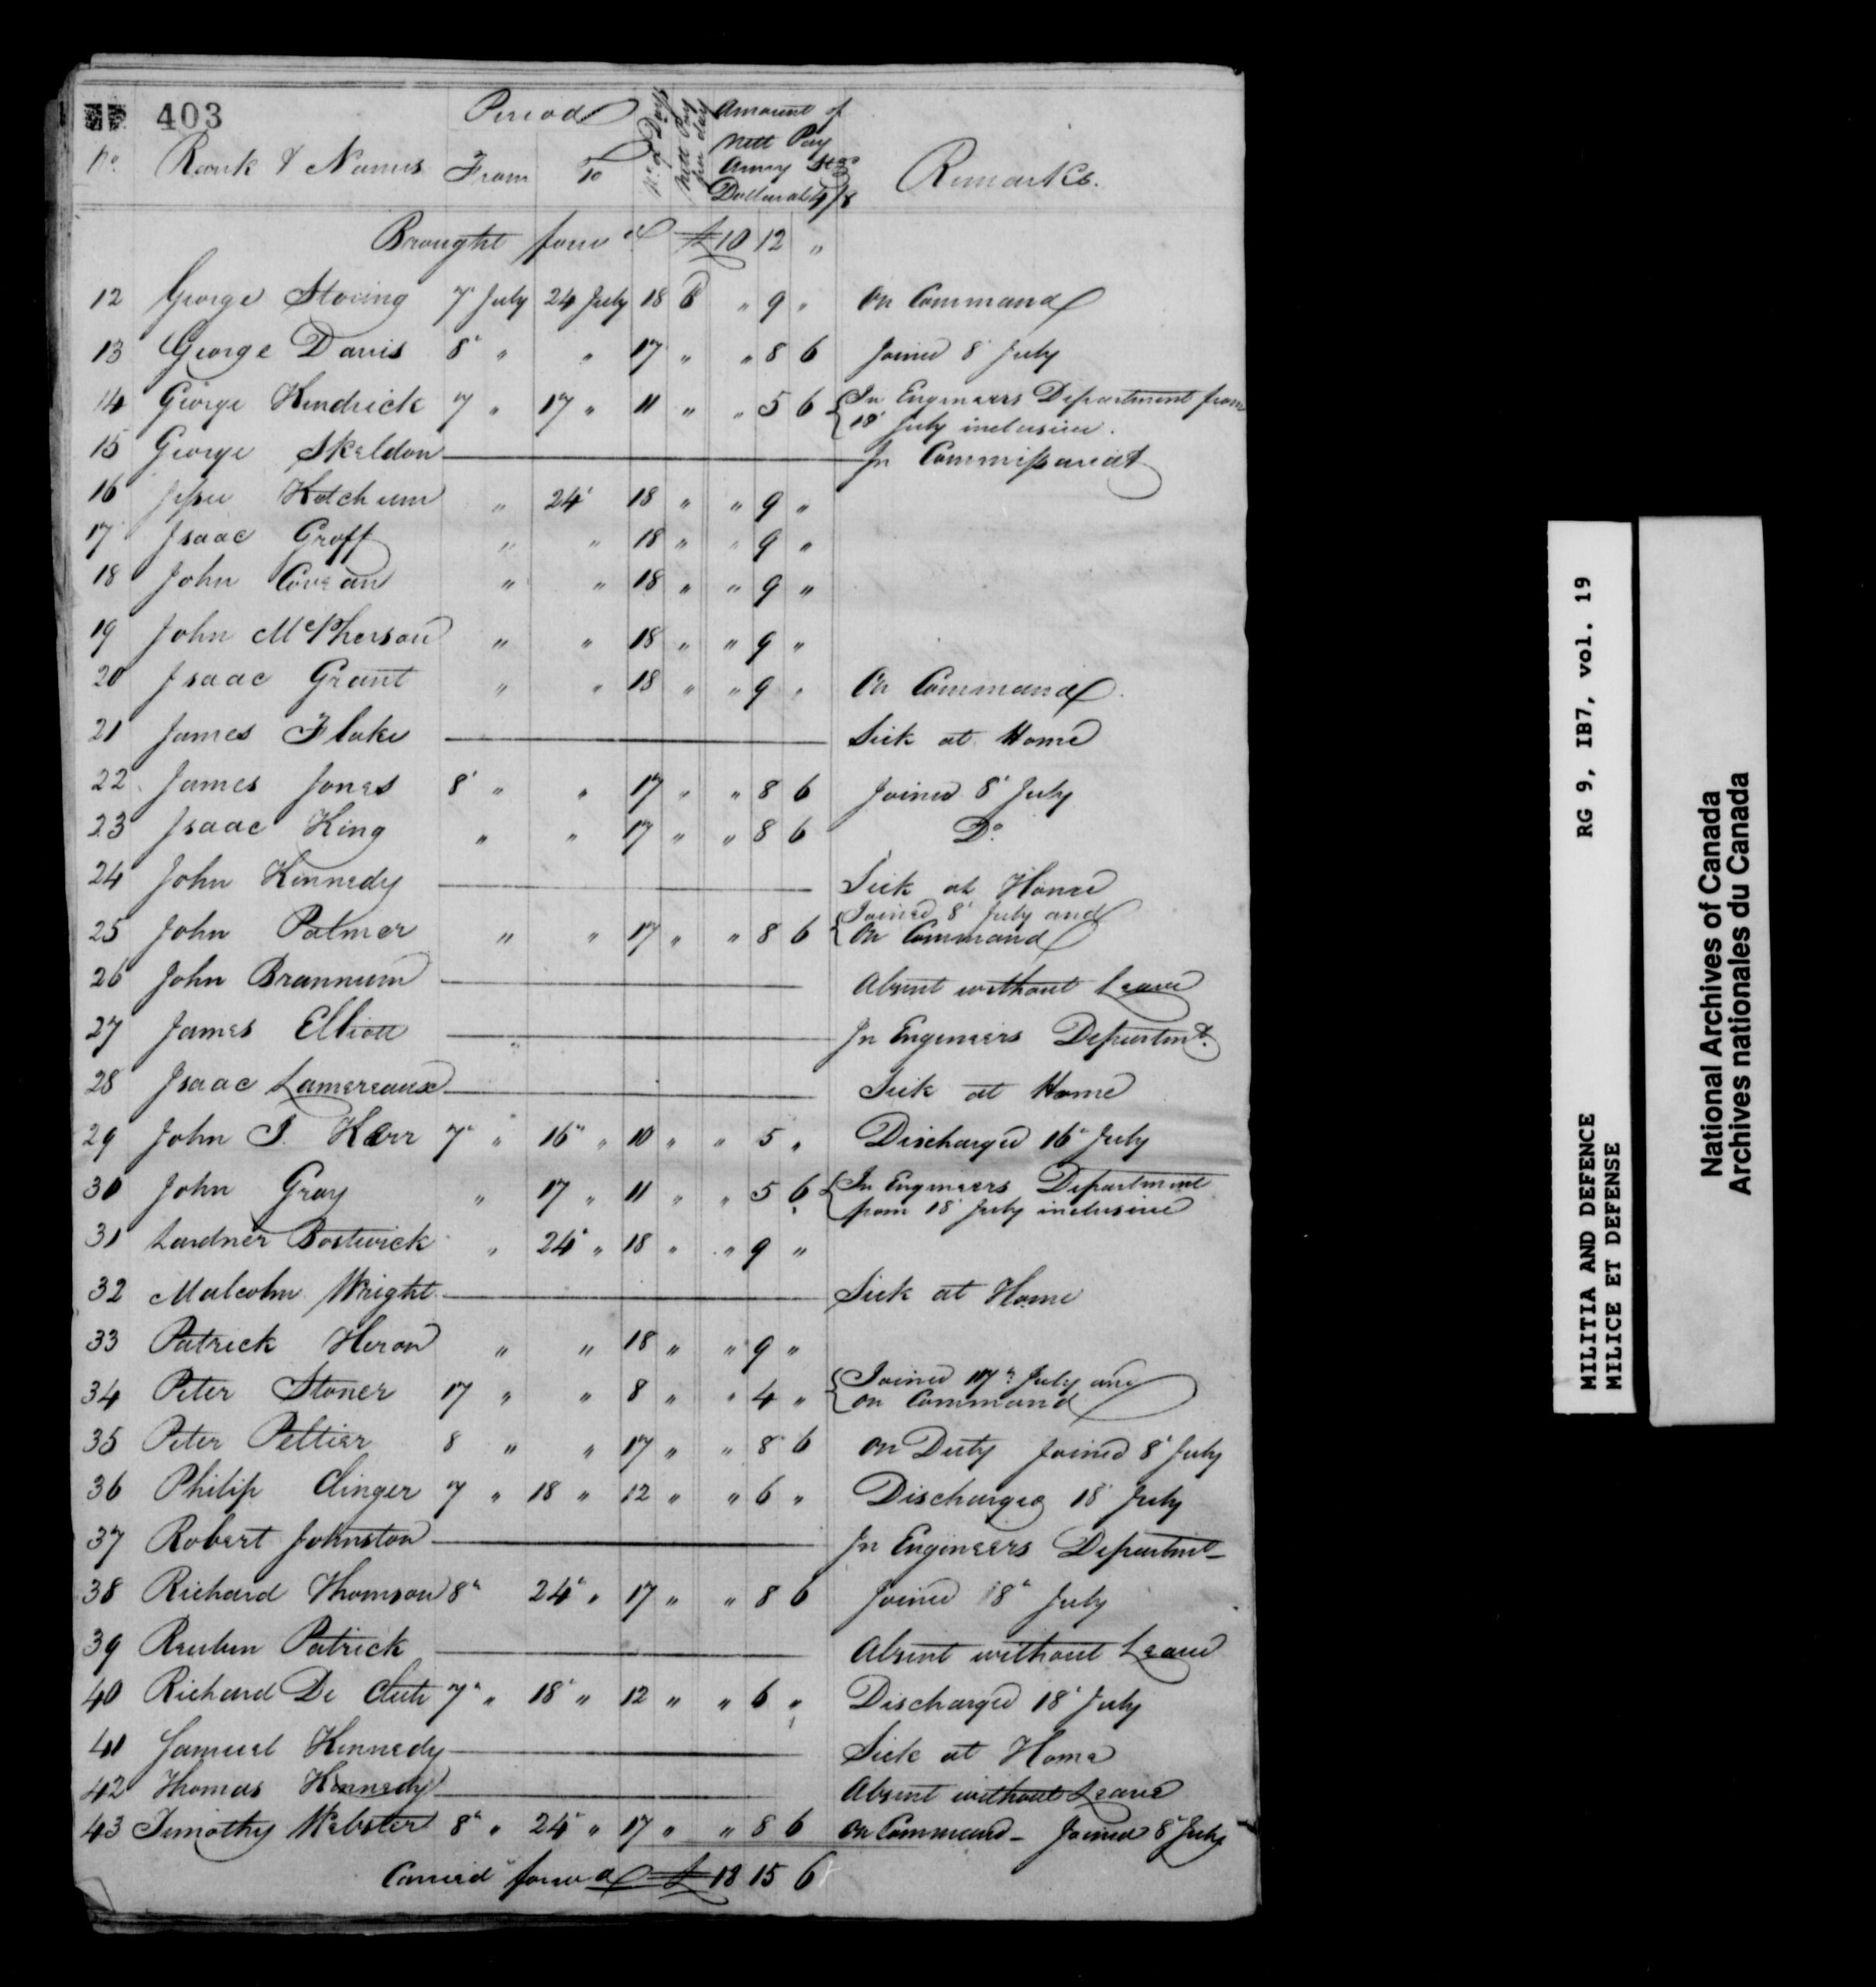 403
No. Rank & Names Period From To No. of Days Nett Pay per day Amount of Nett Pay Army Stg Dollar at 4/8 Remarks.
Brought forwd £10 12 "
12 George Stoving 7' July 24 July 18 6 " 9 " On Command
13 George Davis 8' " " 17 " " 8 6 Joined 8' July
14 George Kendrick 7 " 17 " 11 " " 5 6 {In Engineers Department from
18' July inclusive.
15 George Skeldon — In Commissariat
16 Jesse Ketchum " 24' 18 " " 9 "
17 Isaac Groff " " 18 " " 9 "
18 John Covean " " 18 " " 9 "
19 John McPherson " " 18 " " 9 "
20 Isaac Grant " " 18 " " 9 " On Command.
21 James Fluke — Sick at Home
22 James Jones 8' " " 17 " " 8 6 Joined 8' July
23 Isaac King " " 17 " " 8 6 Do.
24 John Kennedy — Sick at Home
25 John Palmer " " 17 " " 8 6 {Joined 8' July and
On Command
26 John Brannum — Absent without Leave
27 James Elliott — In Engineers Departmt.
28 Isaac Lamereaux — Sick at Home
29 John S. Kerr 7" " 16" " 10 " " 5 " Discharged 16" July
30 John Gray " 17 " 11 " " 5 6 {In Engineers Department
from 18' July inclusive
31 Lardner Bostwick " 24" " 18 " " 9 "
32 Malcolm Wright — Sick at Home
33 Patrick Heron " " 18 " " 9 "
34 Peter Stoner 17 " " 8 " " 4 " {Joined 17" July and
on Command
35 Peter Peltier 8 " " 17 " " 8 6 on Duty Joined 8' July
36 Philip Clinger 7 " 18 " 12 " " 6 " Discharged 18' July
37 Robert Johnston — In Engineers Departmt
38 Richard Thomson 8" 24" " 17 " " 8 6 Joined 8" July
39 Reuben Patrick — Absent without Leave
40 Richard De Clute 7" " 18' " 12 " " 6 " Discharged 18' July
41 Samuel Kennedy — Sick at Home
42 Thomas Kennedy — Absent without Leave
43 Timothy Webster 8" " 24" " 17 " " 8 6 on Command - Joined 8" July
Carried forwd £18 15 6
MILITIA AND DEFENCE RG 9, IB7, vol. 19
MILICE ET DEFENSE
National Archives of Canada
Archives nationales du Canada